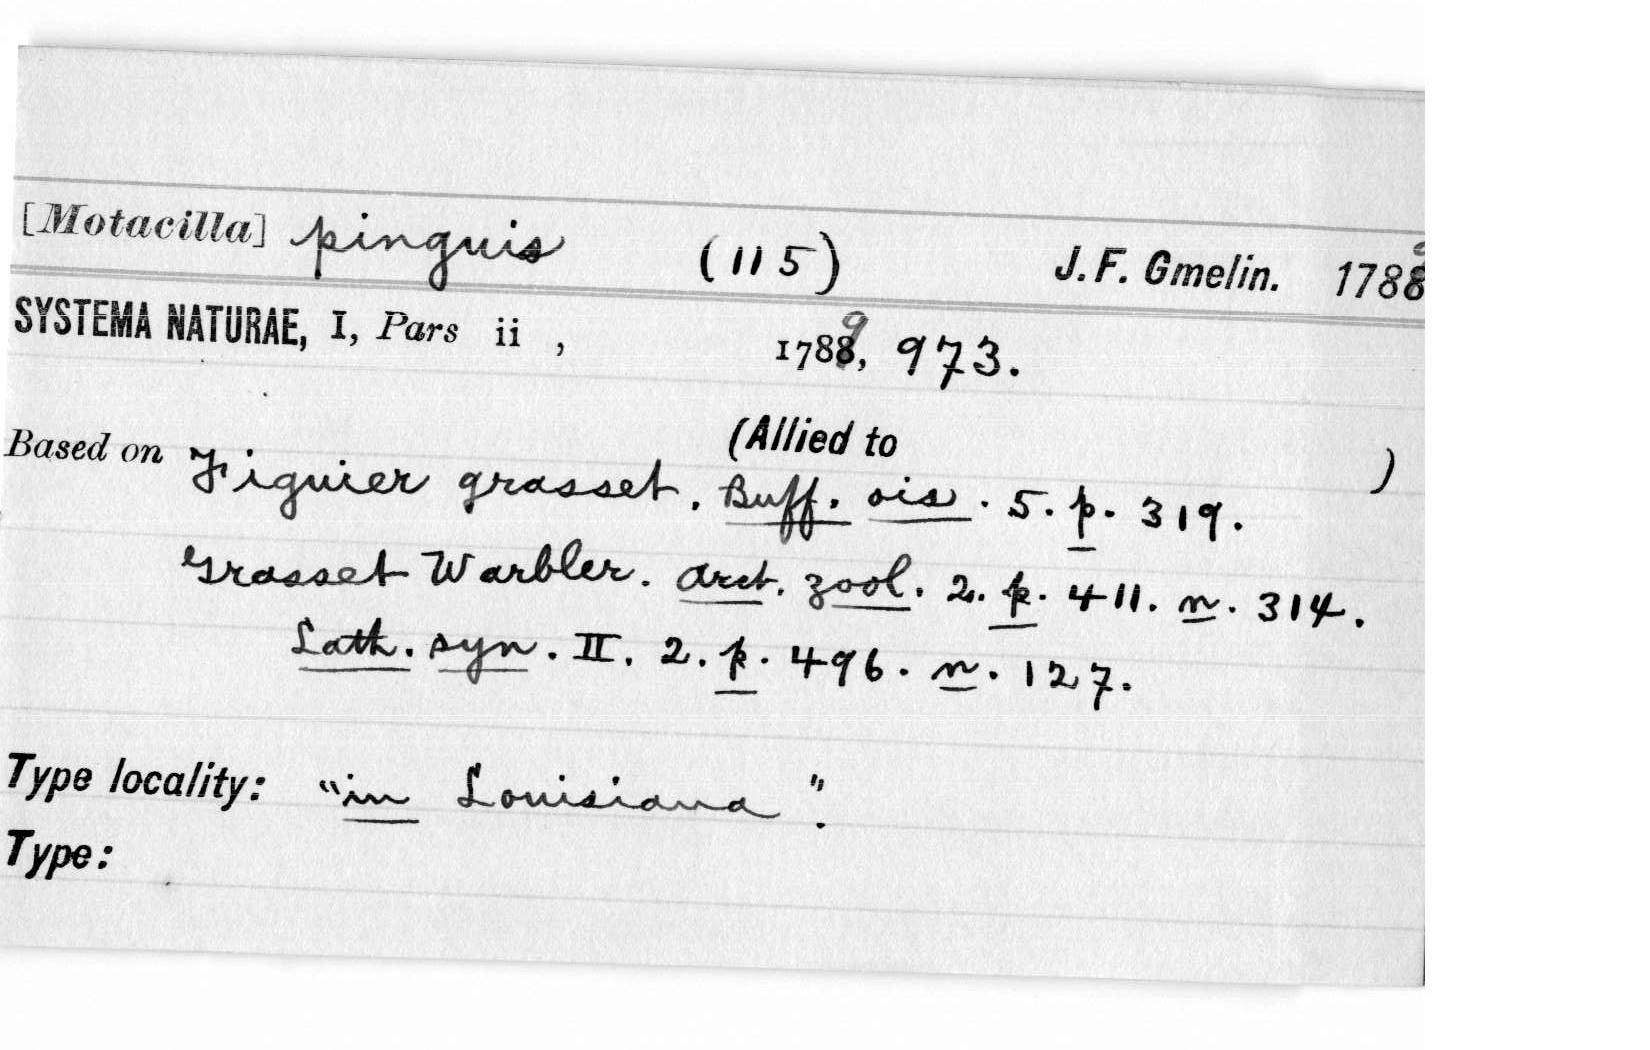 [Motacilla] pinguis (115) J. F. Gmelin. 1788 9
SYSTEMA NATURAE, I, Pars ii , 1788 9, 973.
(Allied to )
Based on Figuier grasset. Buff. ois. 5. p. 319.
Grasset Warbler. arct. zool. 2. p. 411. n. 314.
Lath. syn. II. 2. p. 496. n. 127.
Type locality: "in Louisiana".
Type: